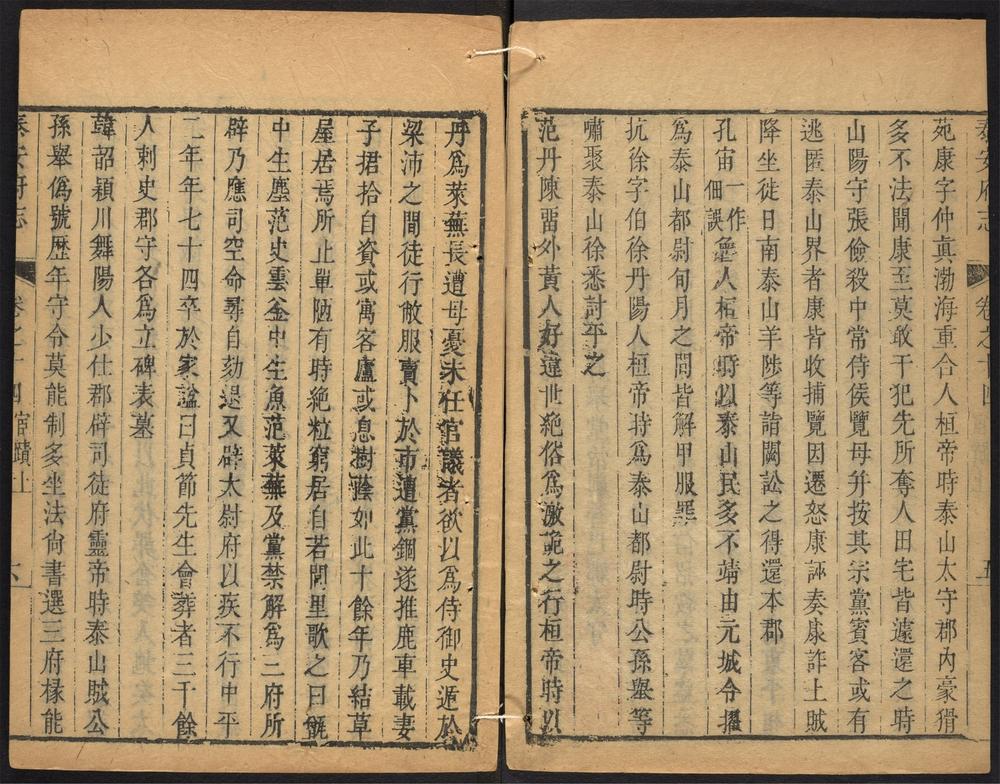 泰安府志 卷之十四 五
苑康字仲真渤海重合人桓帝時泰山太守郡內豪猾
多不法聞康至莫敢干犯先所奪人田宅皆遽還之時
山陽守張儉殺中常侍侯覽母并按其宗黨賓客或有
逃匿泰山界者康皆收捕覽因遷怒康誣奏康詐上賊
降坐徒日南泰山羊陟等詣闕訟之得還本郡
孔宙一作伷誤魯人桓帝時以泰山民多不靖由元城令擢
為泰山都尉旬月之間皆解甲服罪
抗徐字伯徐丹陽人桓帝時爲泰山都尉時公孫舉等
嘯聚泰山徐悉討平之
范丹陳畱外黃人好違世絶俗爲激詭之行桓帝時以
丹爲萊蕪長遭母憂未任官議者欲以爲侍御史遁於
梁沛之間徒行敝服賣卜於市遭黨錮遂推鹿車載妻
子捃拾自資或寓客廬或息樹蔭如此十餘年乃結草
屋居焉所止單陋有時絶粒窮居自若閭里歌之曰甑
中生塵范史雲釜中生魚范萊蕪及黨禁解爲三府所
辟乃應司空命尋自劾退又辟太尉府以疾不行中平
二年年七十四卒於家諡曰貞節先生會葬者三千餘
人刺史郡守各爲立碑表墓
韓韶潁川舞陽人少仕郡辟司徒府靈帝時泰山賊公
孫舉僞號歷年守令莫能制多坐法尙書選三府椽能
泰安府志 卷之十四 宦蹟上 六